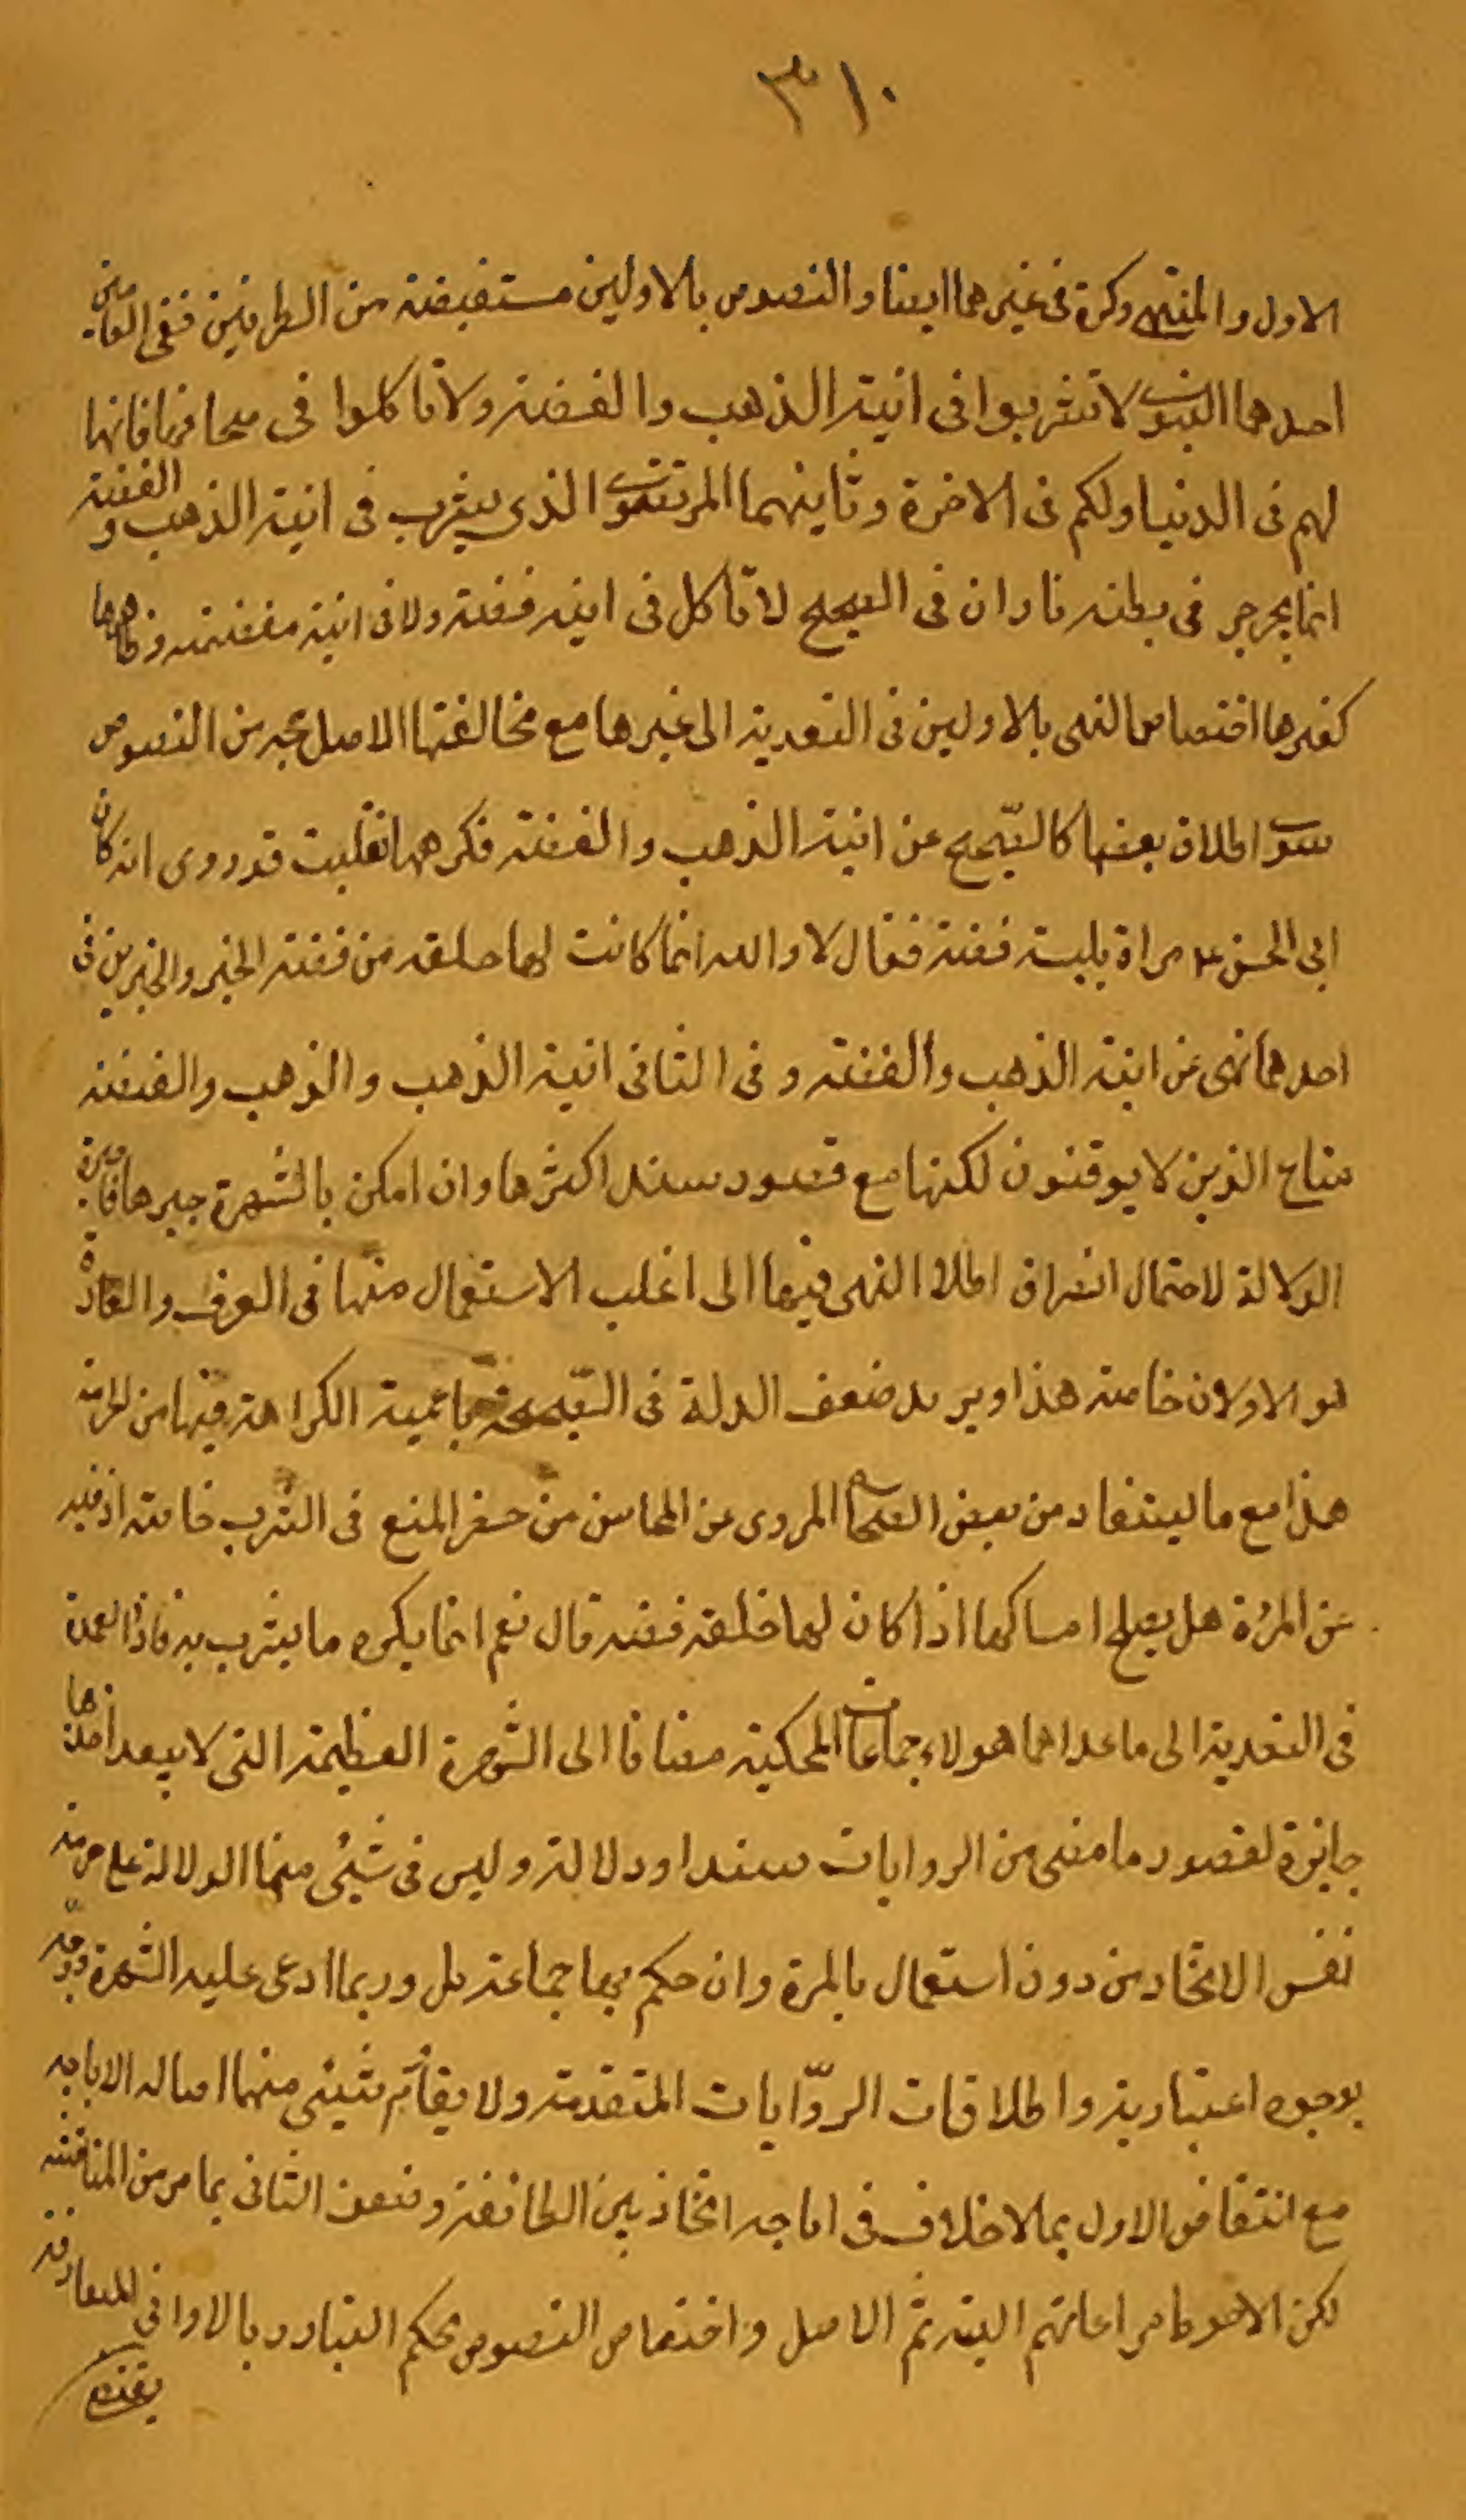 ٣١٠
الاول والمنتهى وكره فى غيرهما ايضا والنصوص بالاولين مستفيضة من الطرفين ففى العامين
احدهما النبوى لا تشربوا فى انية الذهب والفضة ولا تاكلوا فى صحافها فانها
لهم فى الدنيا ولكم فى الاخرة وثانيهما المرتضوى الذى يشرب فى انية الذهب والفضة
انما يجرجر فى بطنه نارا ن فى الصحيح لا تاكل فى انية فضة ولا فى انية مفضضة وظاهرهما
كغيرها اختصاص النهى بالاولين فى التعدية الى غيرها مع مخالفتها الاصل من النصوص
سوى اطلاق بعضها كالصحيح عن انية الذهب والفضة فكرههما فقلت قد روى انه كان
ابى الحسن ع مراة ملبسة فضة فقال لا والله انما كانت لها حلقة من فضة الخبر والخبرين فى
احدهما نهى عن انية الذهب والفضة وفى الثانى انية الذهب والذهب والفضة
متاع الذين لا يوقنون لكنها مع قصور سند اكثرها وان امكن بالشهرة جبرها قاصرة
الدلالة لاحتمال انصراف اطلاق النهى فيها الى اغلب الاستعمال منها فى العرف والعادة
هو الاولان خاصة هذا ويريد ضعف الدلة فى الصحيح باعمية الكراهة فيها من الحرمة
هذا مع ما يستفاد من بعض الصحاح المروى عن المحاسن من حصر المنع فى الشرب خاصة اذ فيه
عن المرءة هل يصلح امساكها اذا كان لها حلقة فضة قال نعم انما يكره ما يشرب به فاذا العمدة
فى التعدية الى ما عداهما هولاء جماعات المحكية مضافا الى الشهرة العظيمة التى لا يبعد اخذها
جابرة لقصور ما مضى من الروايات سندا ودلالة وليس فى شيئى منها الدلالة على حرمة
نفس الاتخاذ من دون استعمال بالمرة وان حكم بها جماعة بل وربما ادعى عليه الشهرة
بوجوه اعتبارية واطلاقات الروايات المتقدمة ولا يقاوم شيئى منها اصالة الاباحة
مع انتقاض الاول بما لا خلاف فى اباحة اتخاذ بين الطائفة وضعف الثانى بما مر من المناقشة
لكن الاحوط مراعاتهم البتة ثم الاصل واختصاص النصوص بحكم التبادر بالاوانى المتعارفة